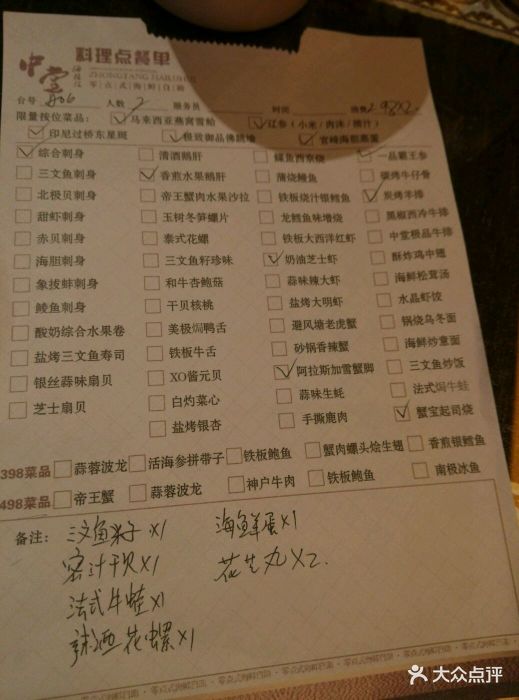 料理点餐单
中堂 海鲜汇
ZHONGTANG HAIXIANHUI
零点式海鲜自助
台号 人数 2 服务员 时间
限量按位菜品: 马来西亚燕窝雪蛤 辽参(小米/肉沫/捞汁)
印尼过桥东星斑 极致御品佛跳墙 宫崎海胆蒸蛋
综合刺身 清酒鹅肝 鲽鱼西京烧 一品霸王参
三文鱼刺身 香煎水果鹅肝 蒲烧鳗鱼 碳烤牛仔骨
北极贝刺身 帝王蟹肉水果沙拉 铁板烧汁银鳕鱼 炭烤羊排
甜虾刺身 玉树冬笋螺片 龙鳕鱼味增烧 黑椒西冷牛排
赤贝刺身 泰式花螺 铁板大西洋红虾 中堂极品牛排
海胆刺身 三文鱼籽珍味 奶油芝士虾 酥炸鸡中翅
象拔蚌刺身 和牛杏鲍菇 蒜味辣大虾 海鲜松茸汤
鲮鱼刺身 干贝核桃 盐烤大明虾 水晶虾饺
酸奶综合水果卷 美极焗鸭舌 避风塘老虎蟹 锅烧乌冬面
盐烤三文鱼寿司 铁板牛舌 砂锅香辣蟹 海鲜炒意面
银丝蒜味扇贝 XO酱元贝 阿拉斯加雪蟹脚 三文鱼炒饭
芝士扇贝 白灼菜心 蒜味生蚝 法式焗牛蛙
盐烤银杏 手撕鹿肉 蟹宝起司烧
398菜品 蒜蓉波龙 活海参拼带子 铁板鲍鱼 蟹肉螺头烩生翅 香煎银鳕鱼
498菜品 帝王蟹 蒜蓉波龙 神户牛肉 铁板鲍鱼 南极冰鱼
备注: 三文鱼籽 x1 海鲜蛋x1
密汁干贝x1 花生丸x2.
法式牛蛙x1
辣酒花螺x1
大众点评